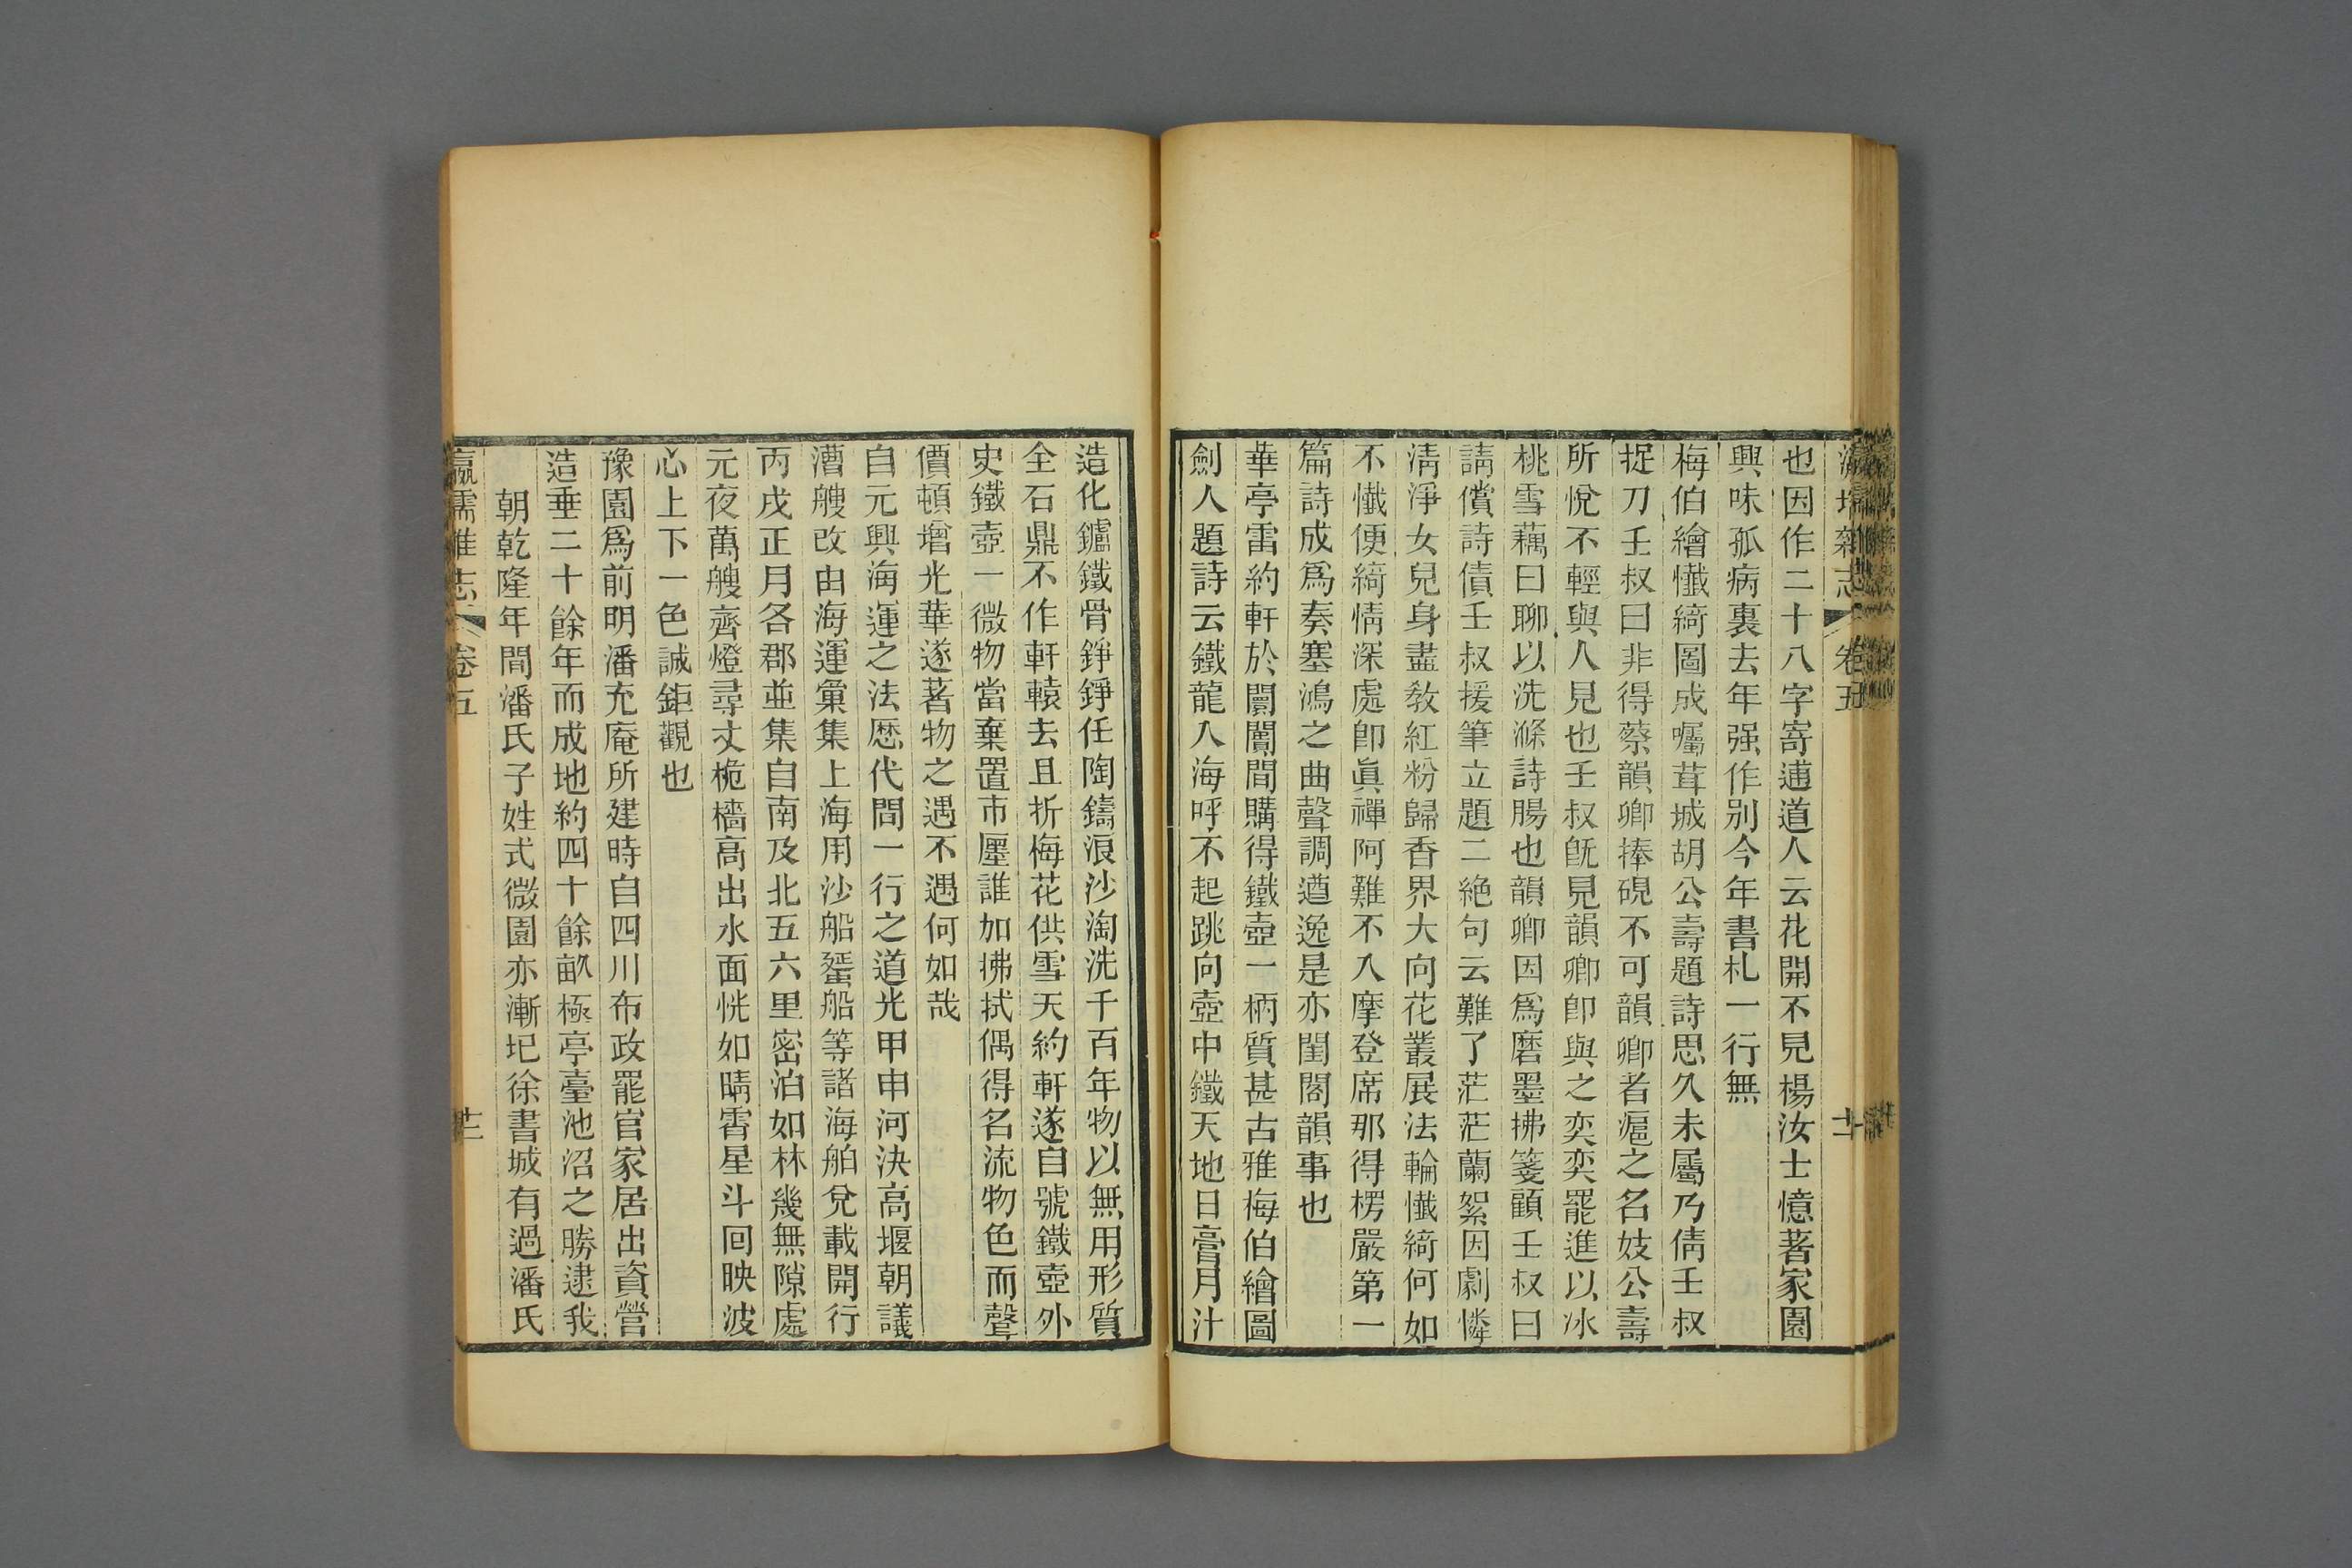 瀛壖雜志 卷五 十二
也因作二十八字寄逋道人云花開不見楊汝士憶著家園
興味孤病裏去年强作别今年書札一行無
梅伯繪懺綺圖成囑茸城胡公壽題詩思久未屬乃倩壬叔
捉刀壬叔曰非得蔡韻卿捧硯不可韻卿者滬之名妓公壽
所悅不輕與人見也壬叔旣見韻卿卽與之奕奕罷進以冰
桃雪藕曰聊以洗滌詩腸也韻卿因爲磨墨拂箋顧壬叔曰
請償詩債壬叔援筆立題二絶句云難了茫茫蘭絮因劇憐
淸淨女兒身盡敎紅粉歸香界大向花叢展法輪懺綺何如
不懺便綺情深處卽眞禪阿難不入摩登席那得楞嚴第一
篇詩成爲奏塞鴻之曲聲調遒逸是亦閨閤韻事也
華亭雷約軒於闤闠間購得鐵壺一柄質甚古雅梅伯繪圖
劍人題詩云鐵龍入海呼不起跳向壺中鐵天地日膏月汁
造化鑪鐵骨錚錚任陶鑄浪沙淘洗千百年物以無用形質
全石鼎不作軒轅去且折梅花供雪天約軒遂自號鐵壺外
史鐵壺一微物當棄置市廛誰加拂拭偶得名流物色而聲
價頓增光華遂著物之遇不遇何如哉
自元興海運之法厯代間一行之道光甲申河決高堰朝議
漕艘改由海運彙集上海用沙船蜑船等諸海舶兌載開行
丙戌正月各郡並集自南及北五六里密泊如林幾無隙處
元夜萬艘齊燈尋丈桅檣高出水面恍如晴霄星斗回映波
心上下一色誠鉅觀也
豫園爲前明潘充庵所建時自四川布政罷官家居出資營
造垂二十餘年而成地約四十餘畝極亭臺池沼之勝逮我
朝乾隆年間潘氏子姓式微園亦漸圮徐書城有過潘氏
瀛壖雜志 卷五 十二